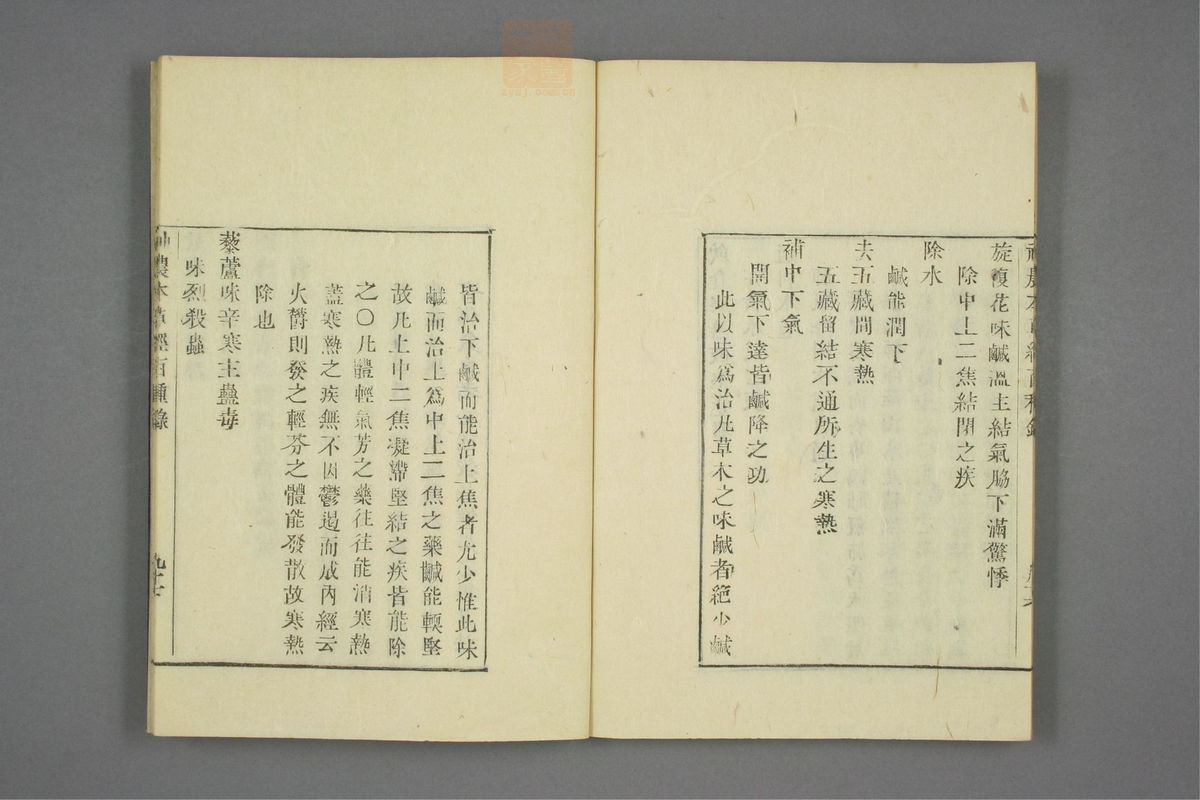 旋覆花味鹹溫主結氣脇下滿驚悸
除中上二焦結閉之疾
除水
鹹能潤下
去五藏間寒熱
五藏留結不通所生之寒熱
補中下氣
開氣下達皆鹹降之功
此以味爲治凡草木之味鹹者絕少鹹
皆治下鹹而能治上焦者尤少惟此味
鹹而治上爲中上二焦之藥鹹能輭堅
故凡上中二焦凝滯堅結之疾皆能除
之〇凡體輕氣芳之藥往往能消寒熱
蓋寒熱之疾無不因鬱遏而成內經云
火欝則發之輕芬之體能發散故寒熱
除也
藜蘆味辛寒主蠱毒
味烈殺蟲
神農本草經百種錄
九十七
zysj.com.cn